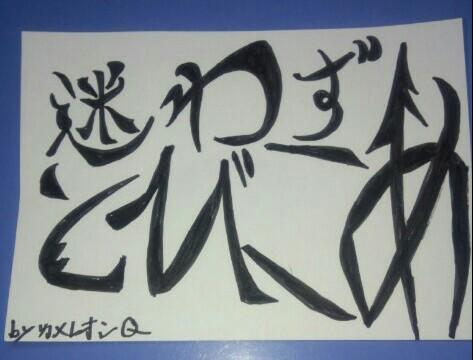 迷わず
とびこめ
by カメレオンQ